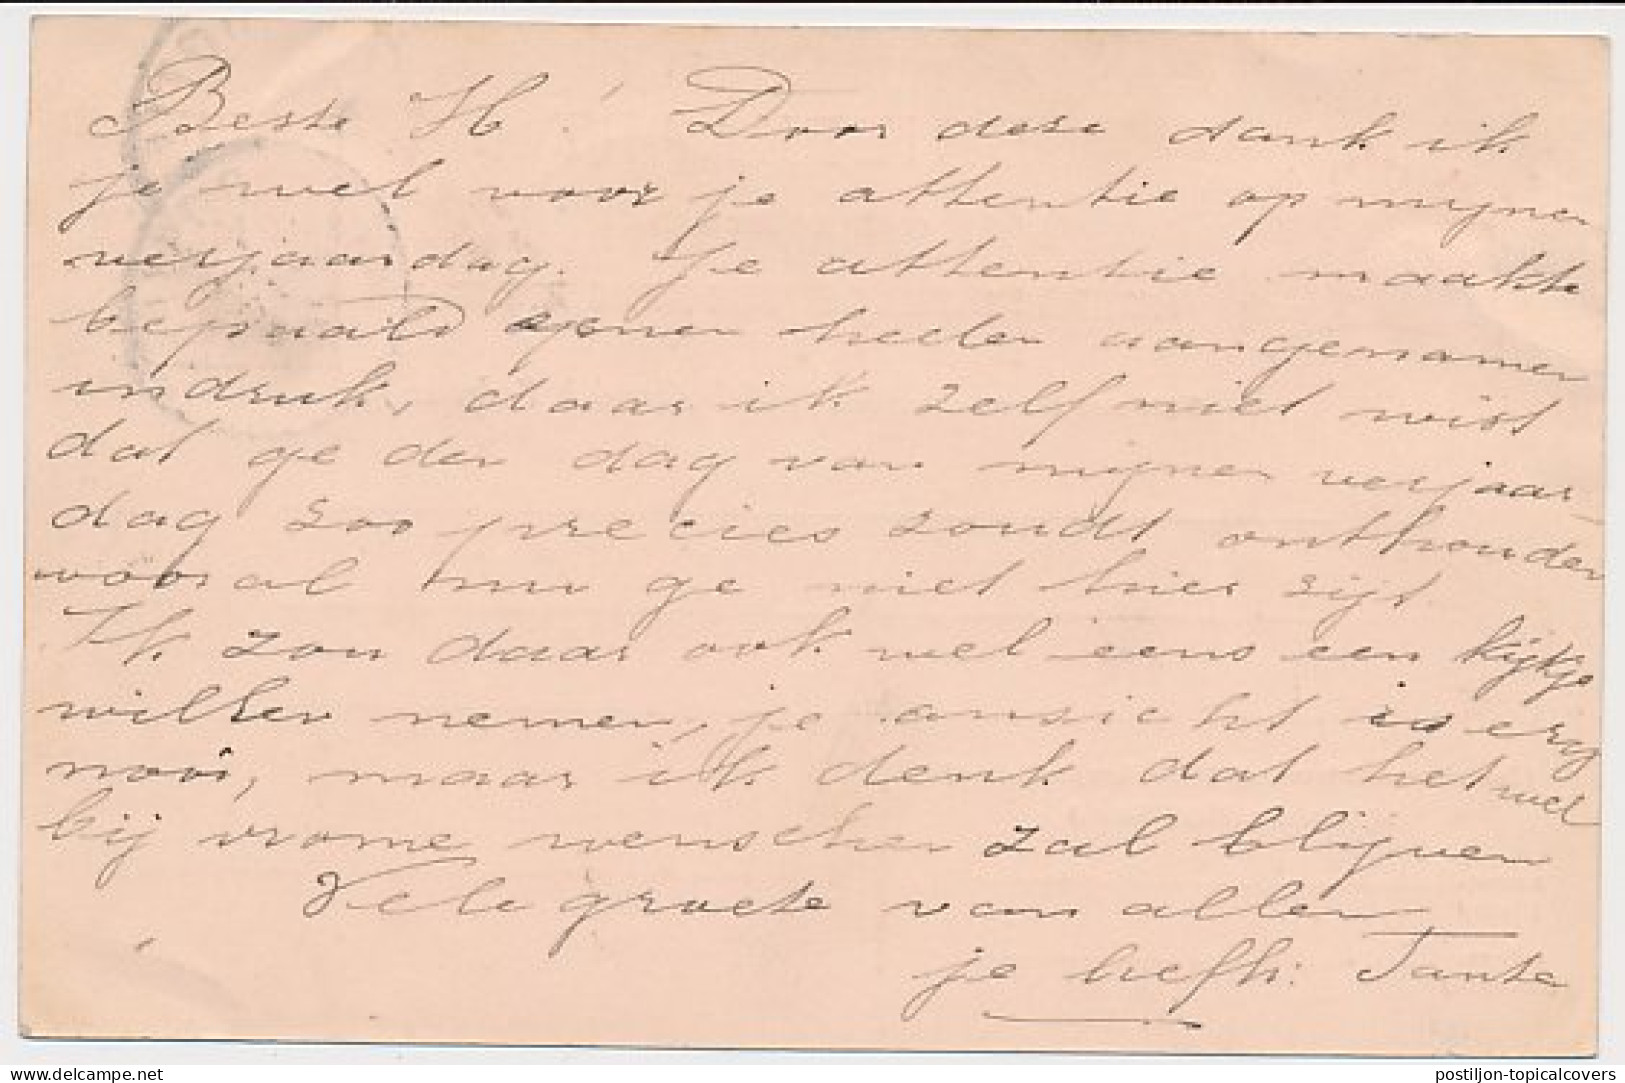 Beste H! Door deze dank ik
je wel voor je attentie op mijnen
verjaardag. Je attentie maakte
bepaald eenen heelen aangenamen
indruk, daar ik zelf niet wist
dat ge den dag van mijnen verjaar-
dag zoo precies zoudt onthouden
vooral nu ge niet hier zijt
Ik zou daar ook wel eens een kijkje
willen nemen, je ansicht is erg
mooi, maar ik denk dat het wel
bij vrome wenschen zal blijven
Vele groete van allen
je liefh: Tante
© Delcampe.net
postiljon-topicalcovers